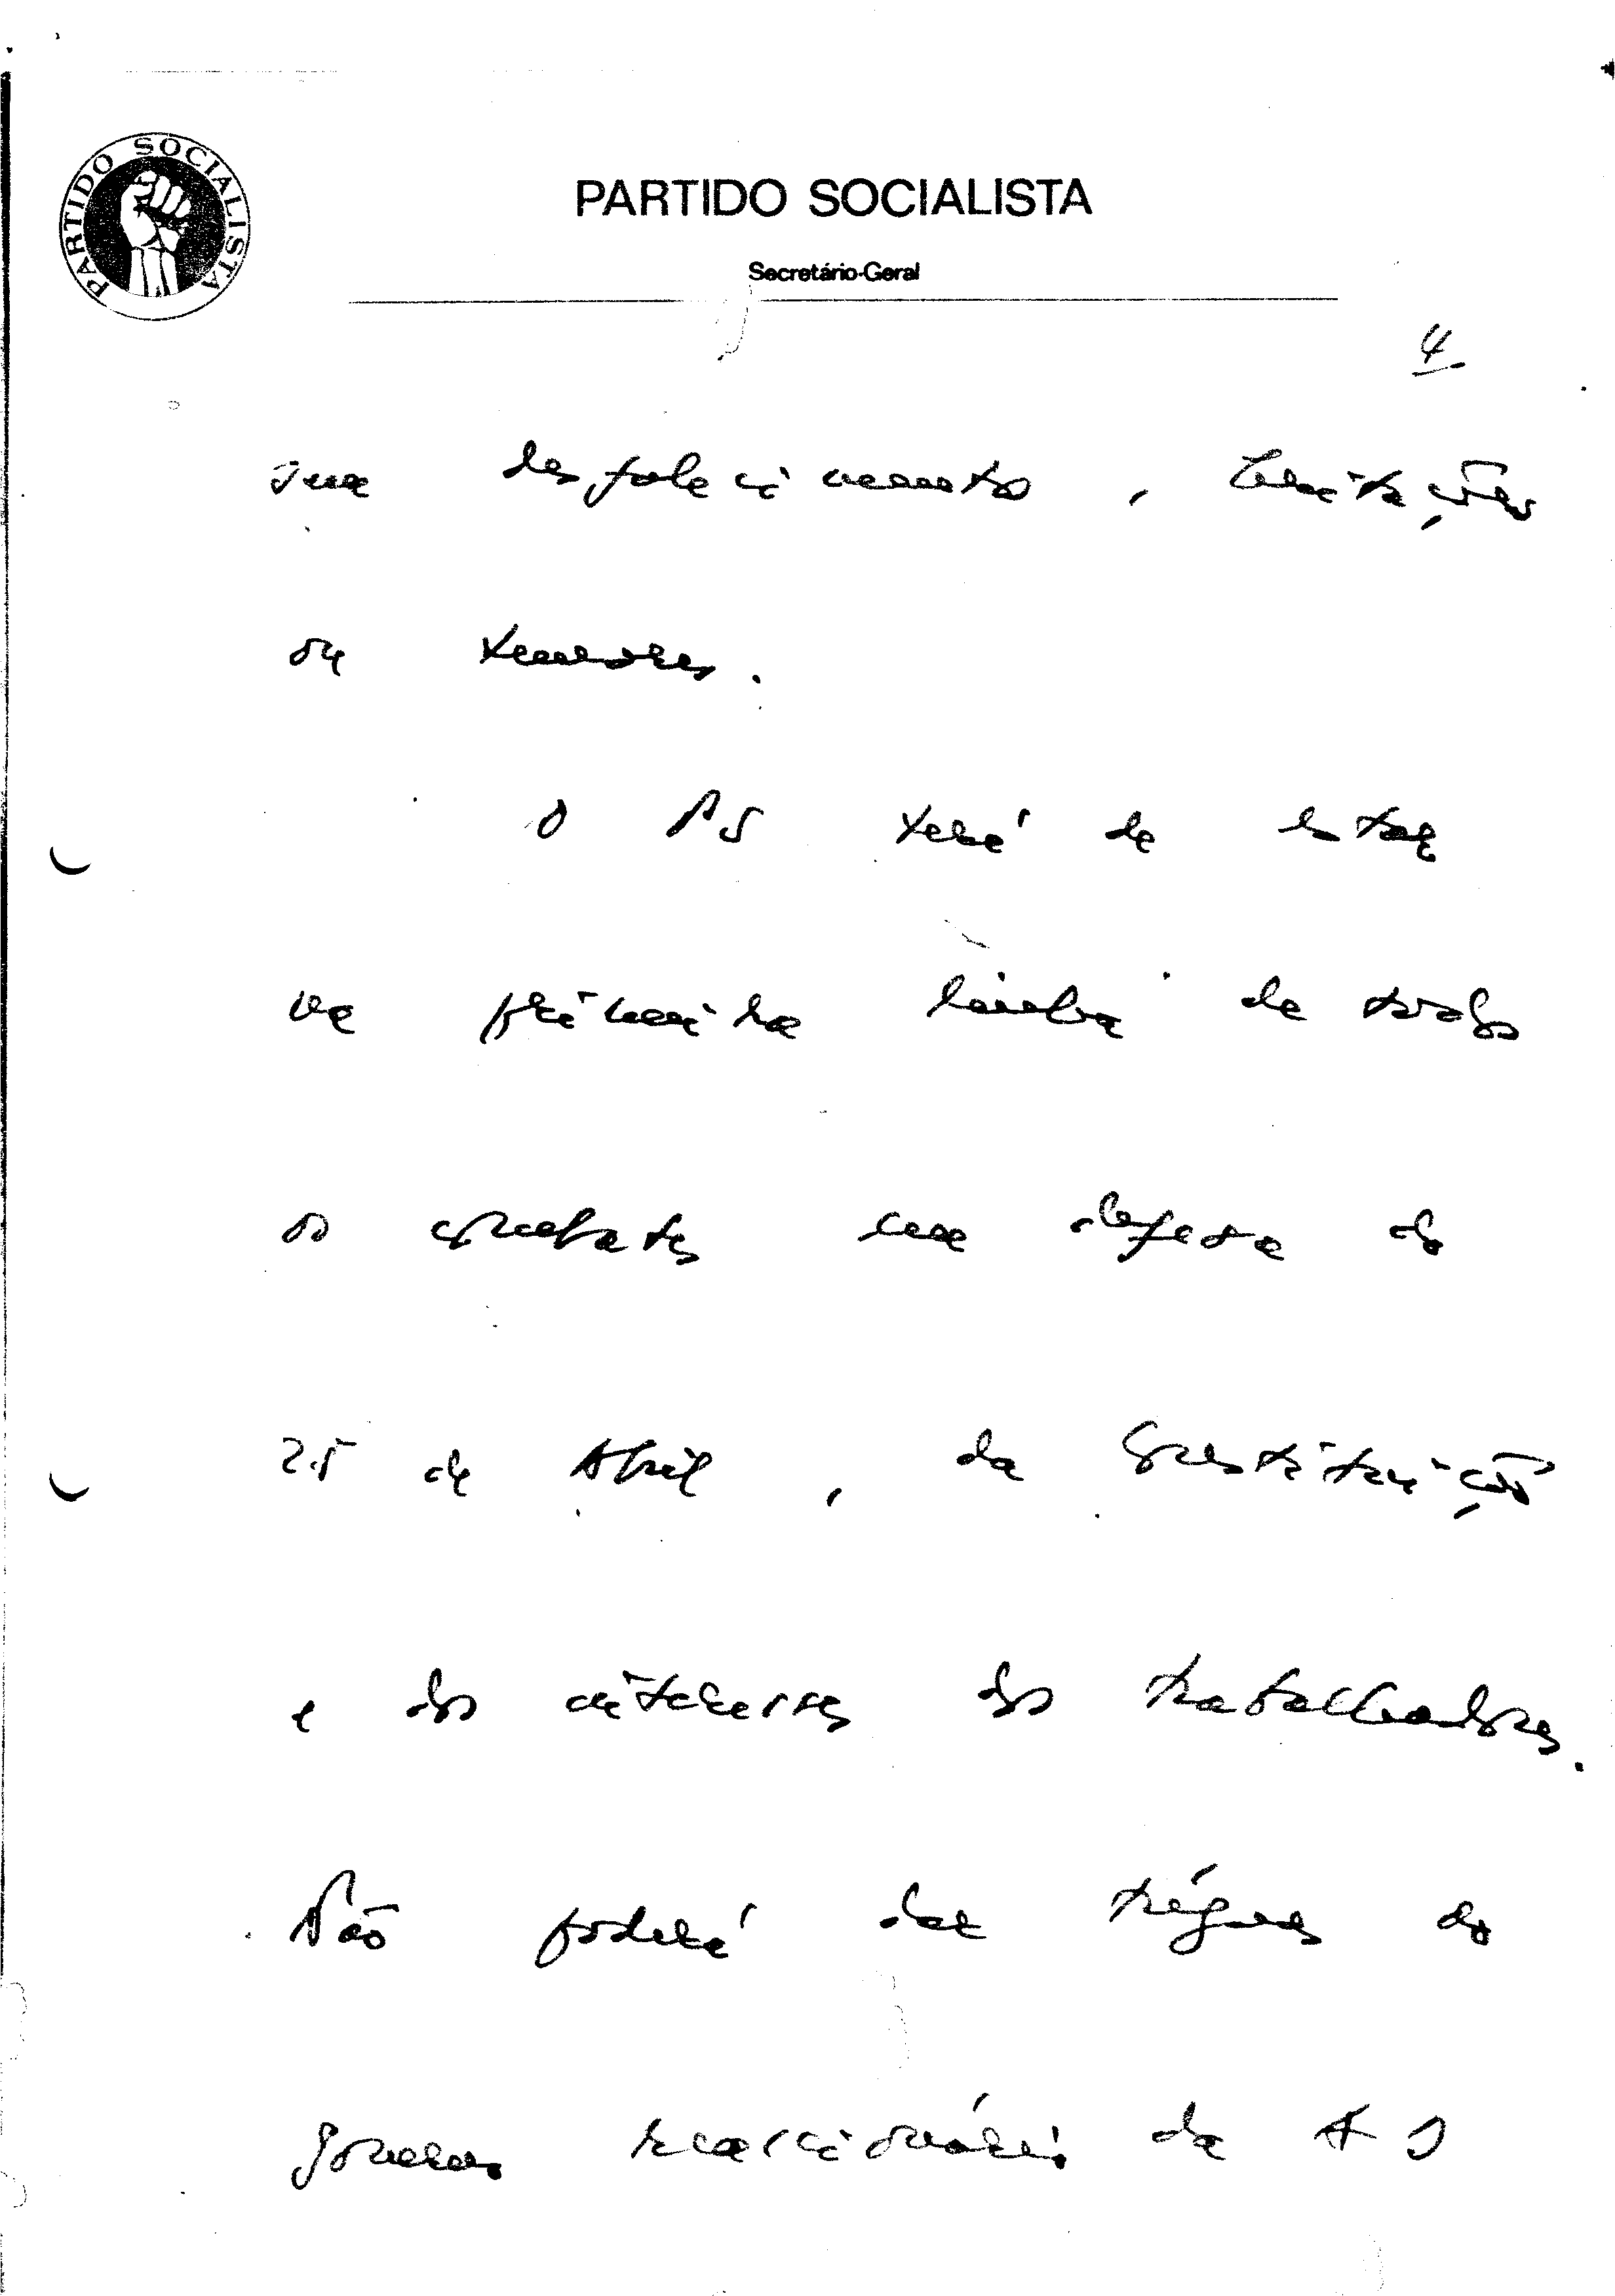 PARTIDO SOCIALISTA
PARTIDO SOCIALISTA
Secretário-Geral
4
sem desfalecimento, hesitações
ou temores.
O PS terá de estar
na primeira linha de todos
os combates em defesa do
25 de Abril, da Constituição
e dos interesses dos trabalhadores.
Não poderá dar tréguas ao
governo reaccionário da AD